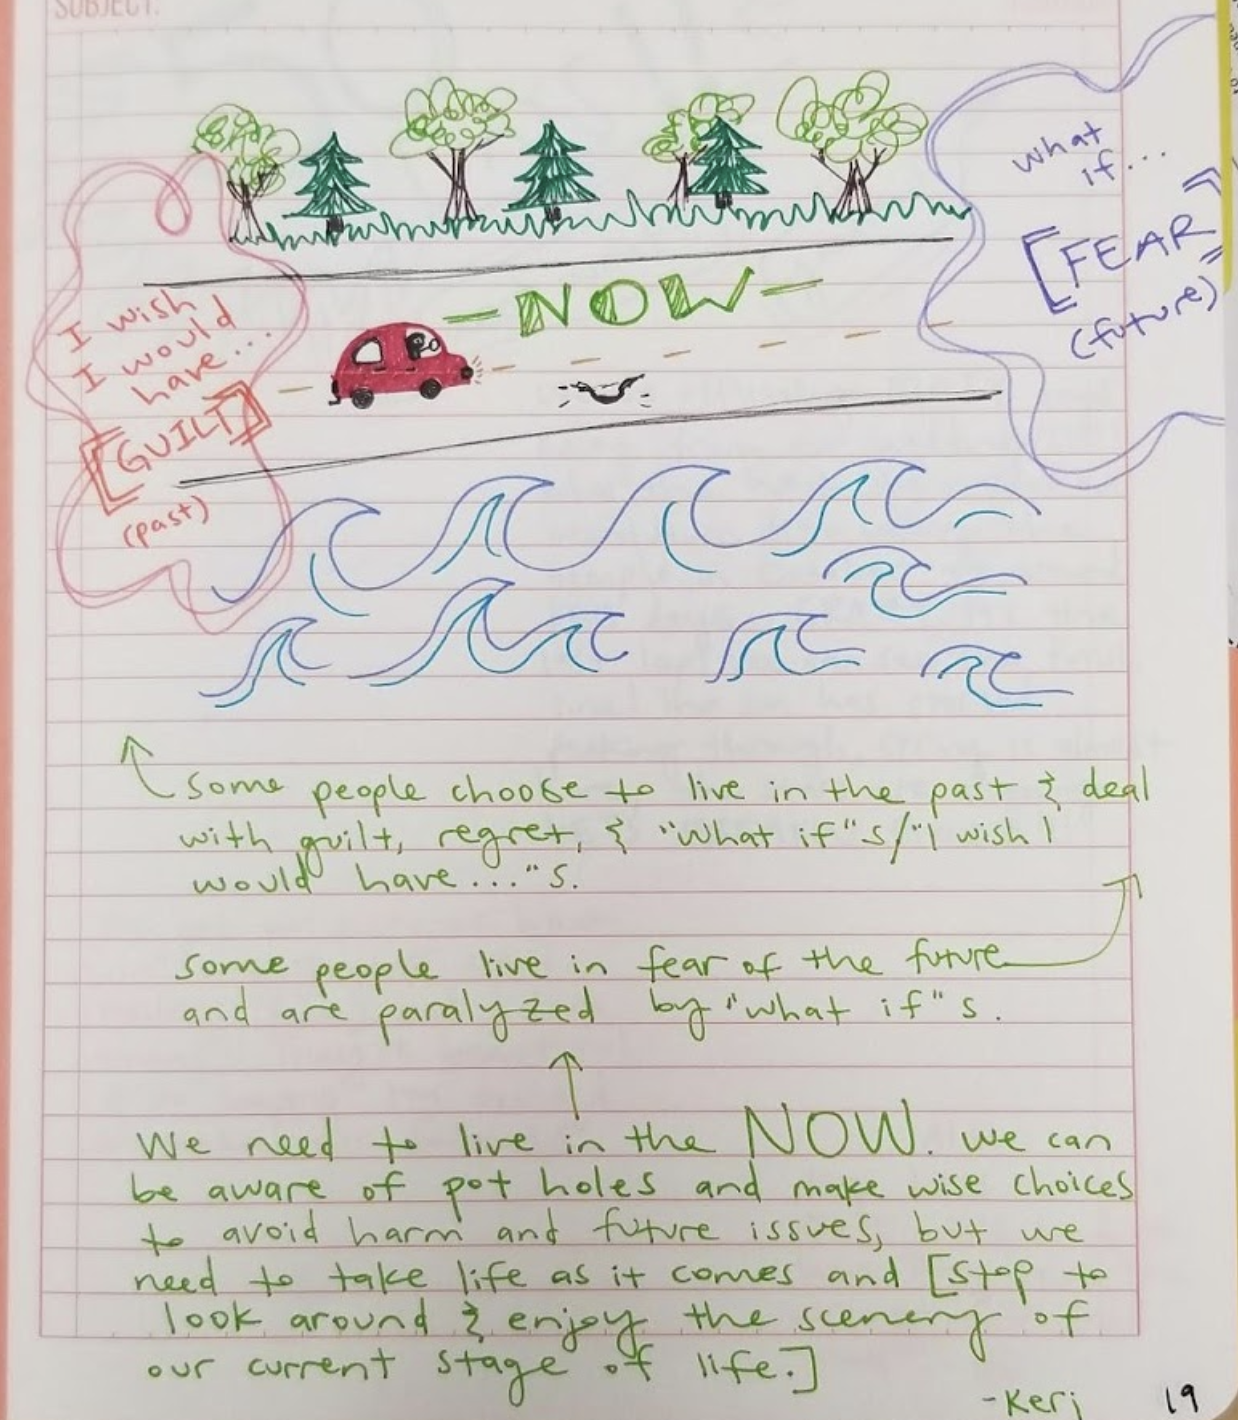 SUBJECT:
what
if...
[FEAR]
(future)
-NOW-
I wish
I would
have...
[GUILT]
(past)
Some people choose to live in the past & deal
with guilt, regret, & "What if"s/"I wish I
would have..."s.
Some people live in fear of the future
and are paralyzed by "what if"s.
We need to live in the NOW. We can
be aware of pot holes and make wise choices
to avoid harm and future issues, but we
need to take life as it comes and [stop to
look around & enjoy the scenery of
our current stage of life.]
-Keri
19